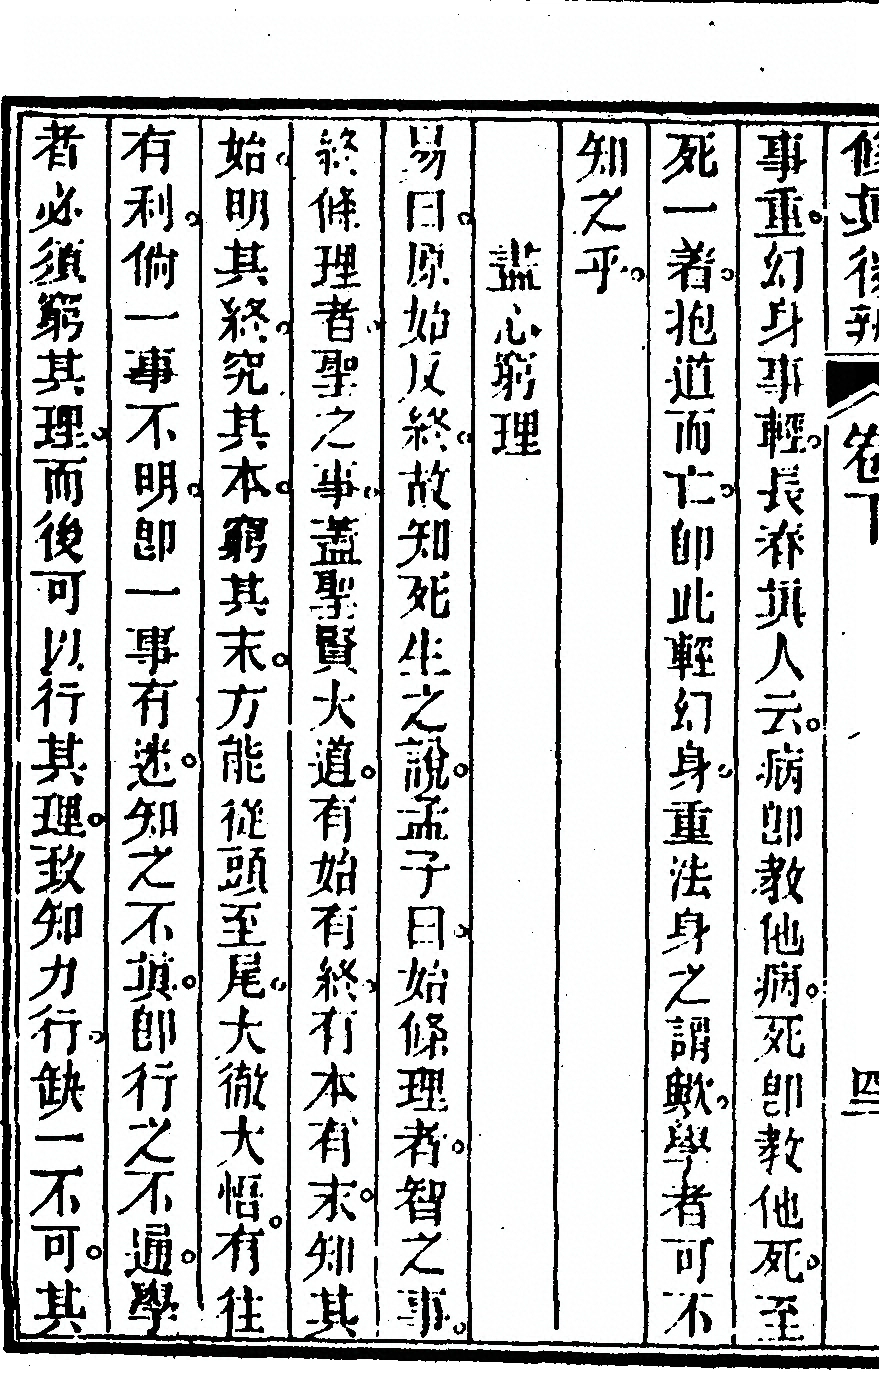 修真後辨 卷下 四
事重。幻身事輕。長春真人云。病即教他病。死即教他死。至
死一着。抱道而亡。即此輕幻身。重法身之謂歟。學者可不
知之乎。
盡心窮理
易曰。原始反終。故知死生之說。孟子曰。始條理者。智之事。
終條理者。聖之事。蓋聖賢大道。有始有終。有本有末。知其
始。明其終。究其本。窮其末。方能從頭至尾。大徹大悟。有往
有利。倘一事不明。即一事有迷。知之不真。即行之不通。學
者必須窮其理。而後可以行其理。致知力行。缺一不可。其